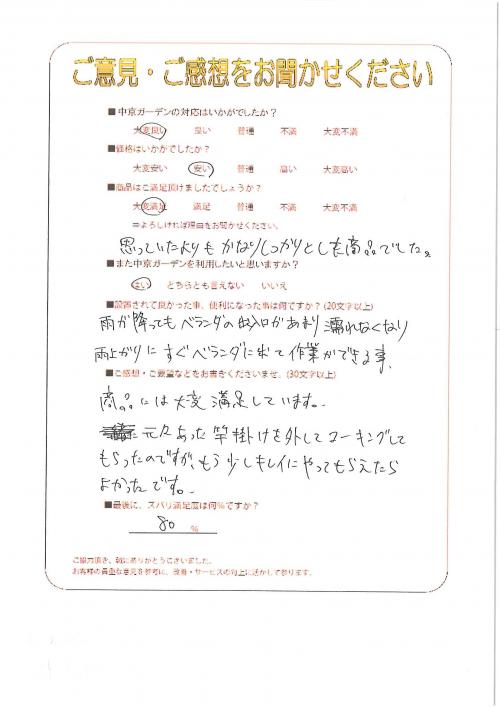 ご意見・ご感想をお聞かせください
■中京ガーデンの対応はいかがでしたか？
大変良い 良い 普通 不満 大変不満
■価格はいかがでしたか？
大変安い 安い 普通 高い 大変高い
■商品はご満足頂けましたでしょうか？
大変満足 満足 普通 不満 大変不満
⇒よろしければ理由をお聞かせください。
思っていたよりもかなりしっかりとした商品でした。
■また中京ガーデンを利用したいと思いますか？
はい どちらとも言えない いいえ
■設置されて良かった事、便利になった事は何ですか？(20文字以上)
雨が降ってもベランダの出入口があまり濡れなくなり
雨上がりにすぐベランダに出て作業ができる事、
■ご感想・ご要望などをお書きくださいませ。(30文字以上)
商品には大変満足しています。
元々あった竿掛けを外してコーキングして
もらったのですが、もう少しキレイにやってもらえたら
よかったです。
■最後に、ズバリ満足度は何%ですか？
80 %
ご協力頂き、誠にありがとうございました。
お客様の貴重な意見を参考に、改善・サービスの向上に活かして参ります。